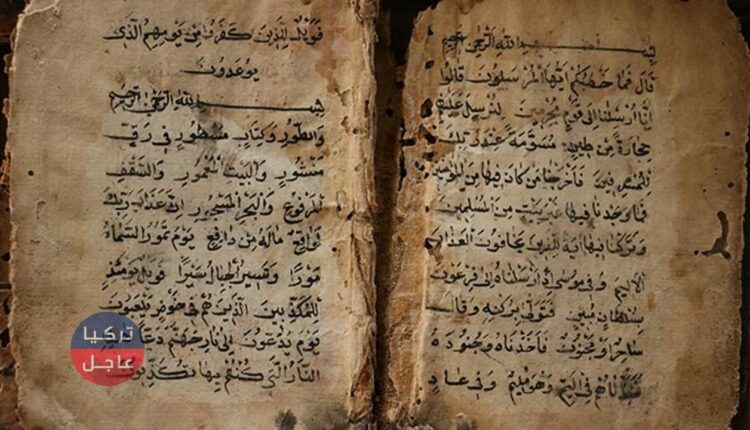 بسم الله الرحمن الرحيم
قال فما خطبكم ايها المرسلون قالوا
إنا ارسلنا الى قوم مجرمين لنرسل عليهم
حجارة من طين مسومة عند ربك
للمسرفين فأخرجنا من كان فيها من المؤمنين
فما وجدنا فيها غير بيت من المسلمين
وتركنا فيها اية للذين يخافون العذاب
الاليم وفي موسى اذ ارسلناه الى فرعون
بسلطان مبين فتولى بركنه وقال
ساحر او مجنون فاخذناه وجنوده
فنبذناهم في اليم وهو مليم وفي عاد
فويل للذين كفروا من يومهم الذى
يوعدون
بسم الله الرحمن الرحيم
والطور وكتاب مسطور في رق
منشور والبيت المعمور والسقف
المرفوع والبحر المسجور ان عذاب ربك
لواقع ماله من دافع يوم تمور السماء
مورا وتسير الجبال سيرا فويل يومئذ
للمكذبين الذين هم في خوض يلعبون
يوم يدعون الى نار جهنم دعا
النار التي كنتم بها تكذبون
تركيا
عاجل